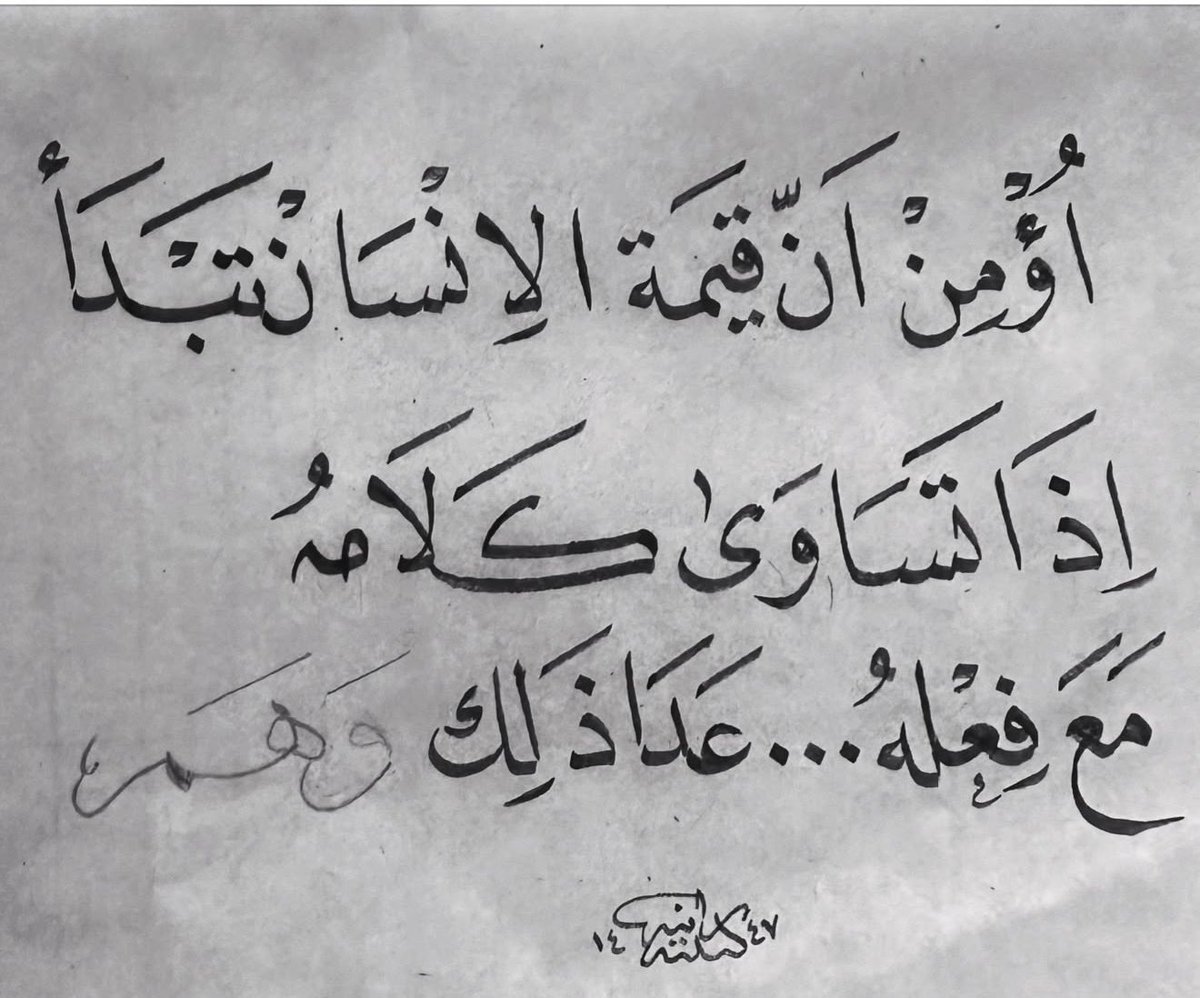 أُؤْمِنْ اَنّ قيَمة الاِنْسَانْ تَبْدَأ
اِذَا تَسَاوَى كَلَامهُ
مَعَ فِعْلهُ... عَدَا ذَلِك وَهَم
١٤٤٧